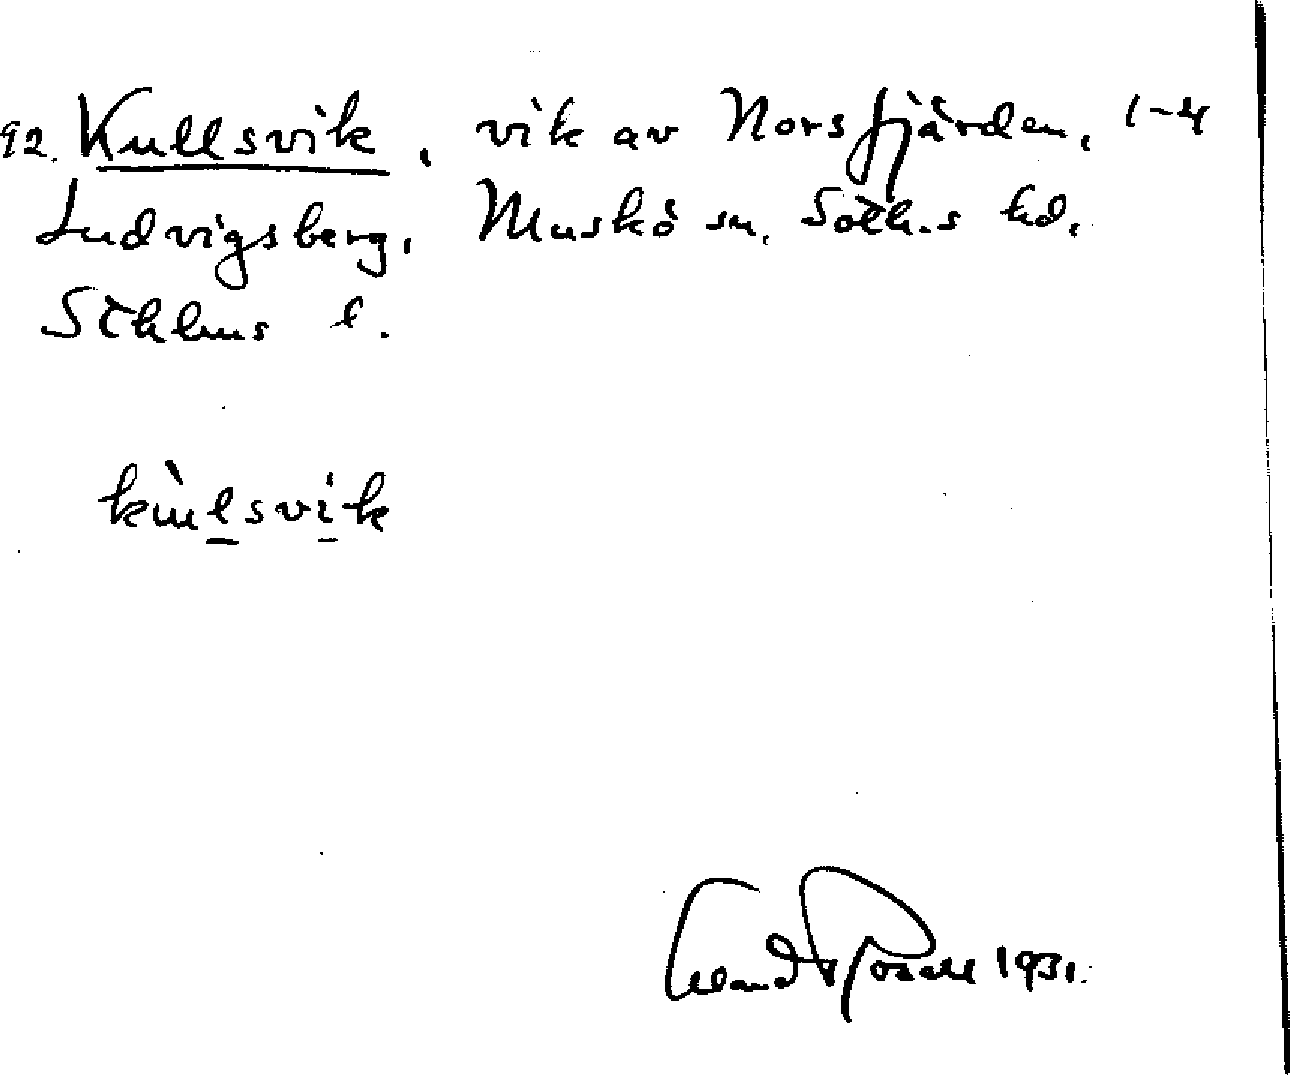 92. Kullsvik, vik av Norsfjärden, 1-4
Ludvigsberg, Muskö sn, Soth.s hd,
Sthlms l.
kùlsvik
Erland Rosell 1931.